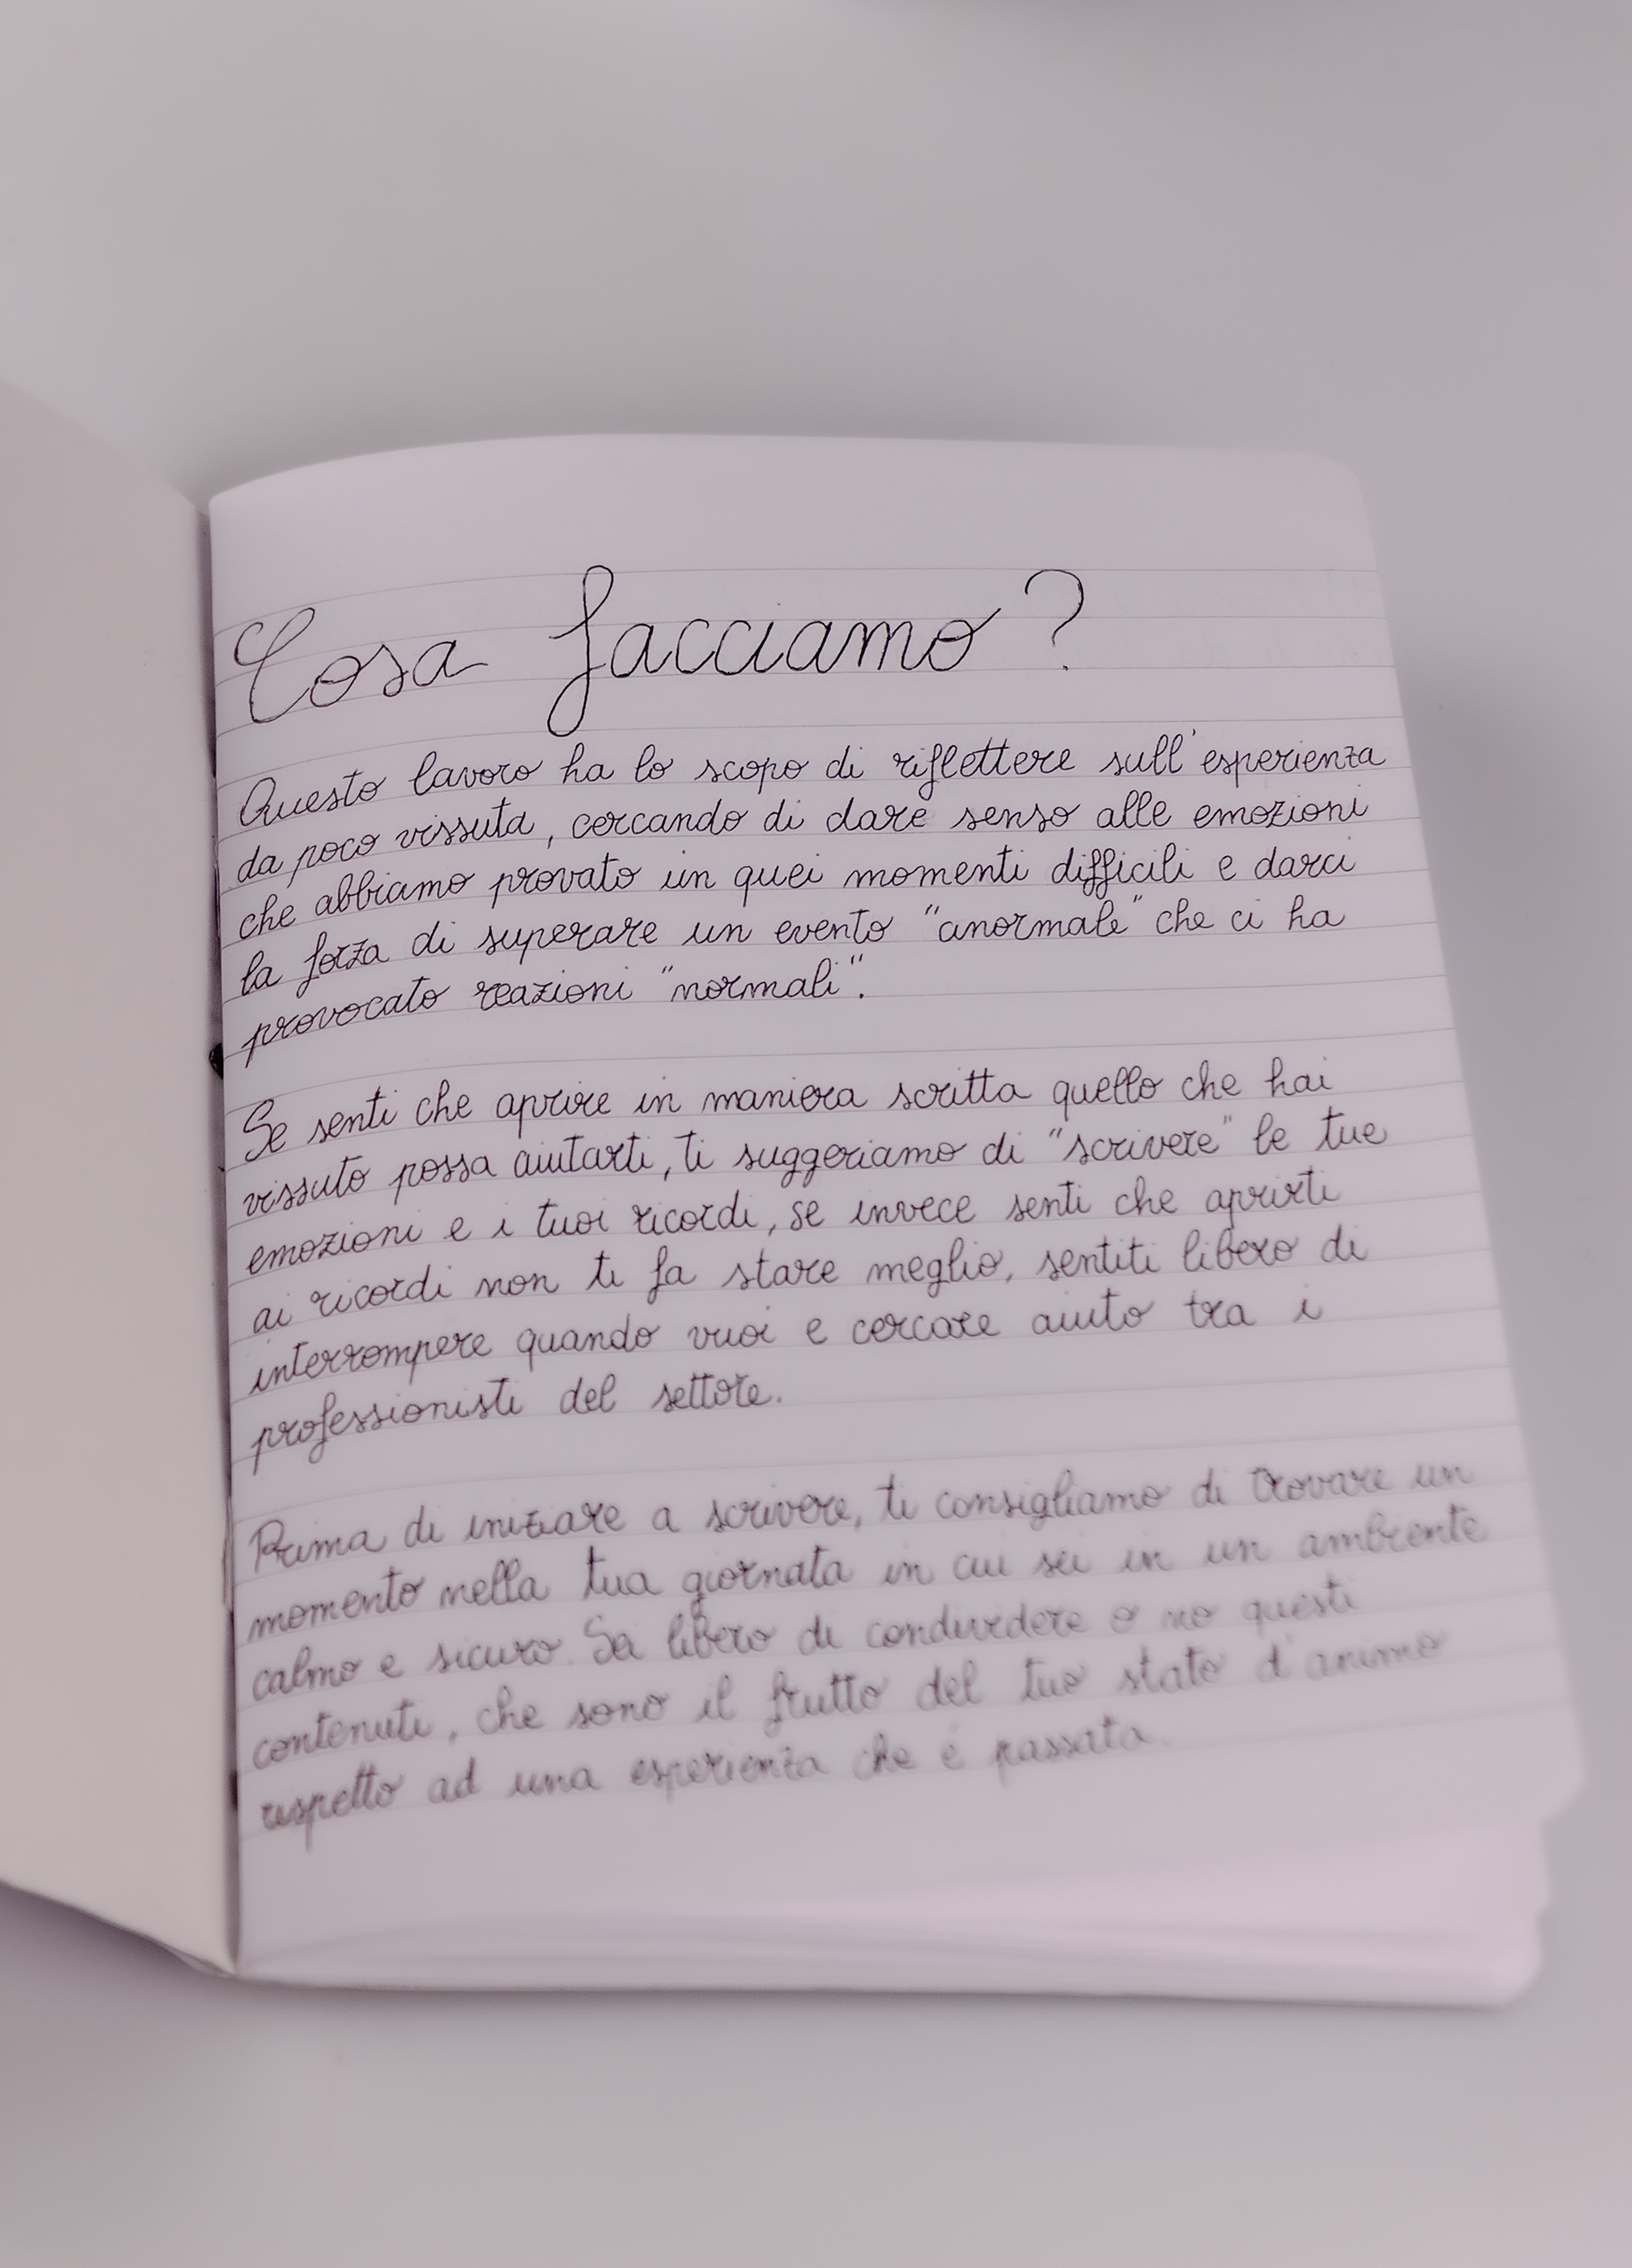 Cosa facciamo?
Questo lavoro ha lo scopo di riflettere sull'esperienza
da poco vissuta, cercando di dare senso alle emozioni
che abbiamo provato in quei momenti difficili e darci
la forza di superare un evento "anormale" che ci ha
provocato reazioni "normali".
Se senti che aprire in maniera scritta quello che hai
vissuto possa aiutarti, ti suggeriamo di "scrivere" le tue
emozioni e i tuoi ricordi, se invece senti che aprirti
ai ricordi non ti fa stare meglio, sentiti libero di
interrompere quando vuoi e cercare aiuto tra i
professionisti del settore.
Prima di iniziare a scrivere, ti consigliamo di trovare un
momento nella tua giornata in cui sei in un ambiente
calmo e sicuro. Sei libero di condividere o no questi
contenuti, che sono il frutto del tuo stato d'animo
rispetto ad una esperienza che é passata.